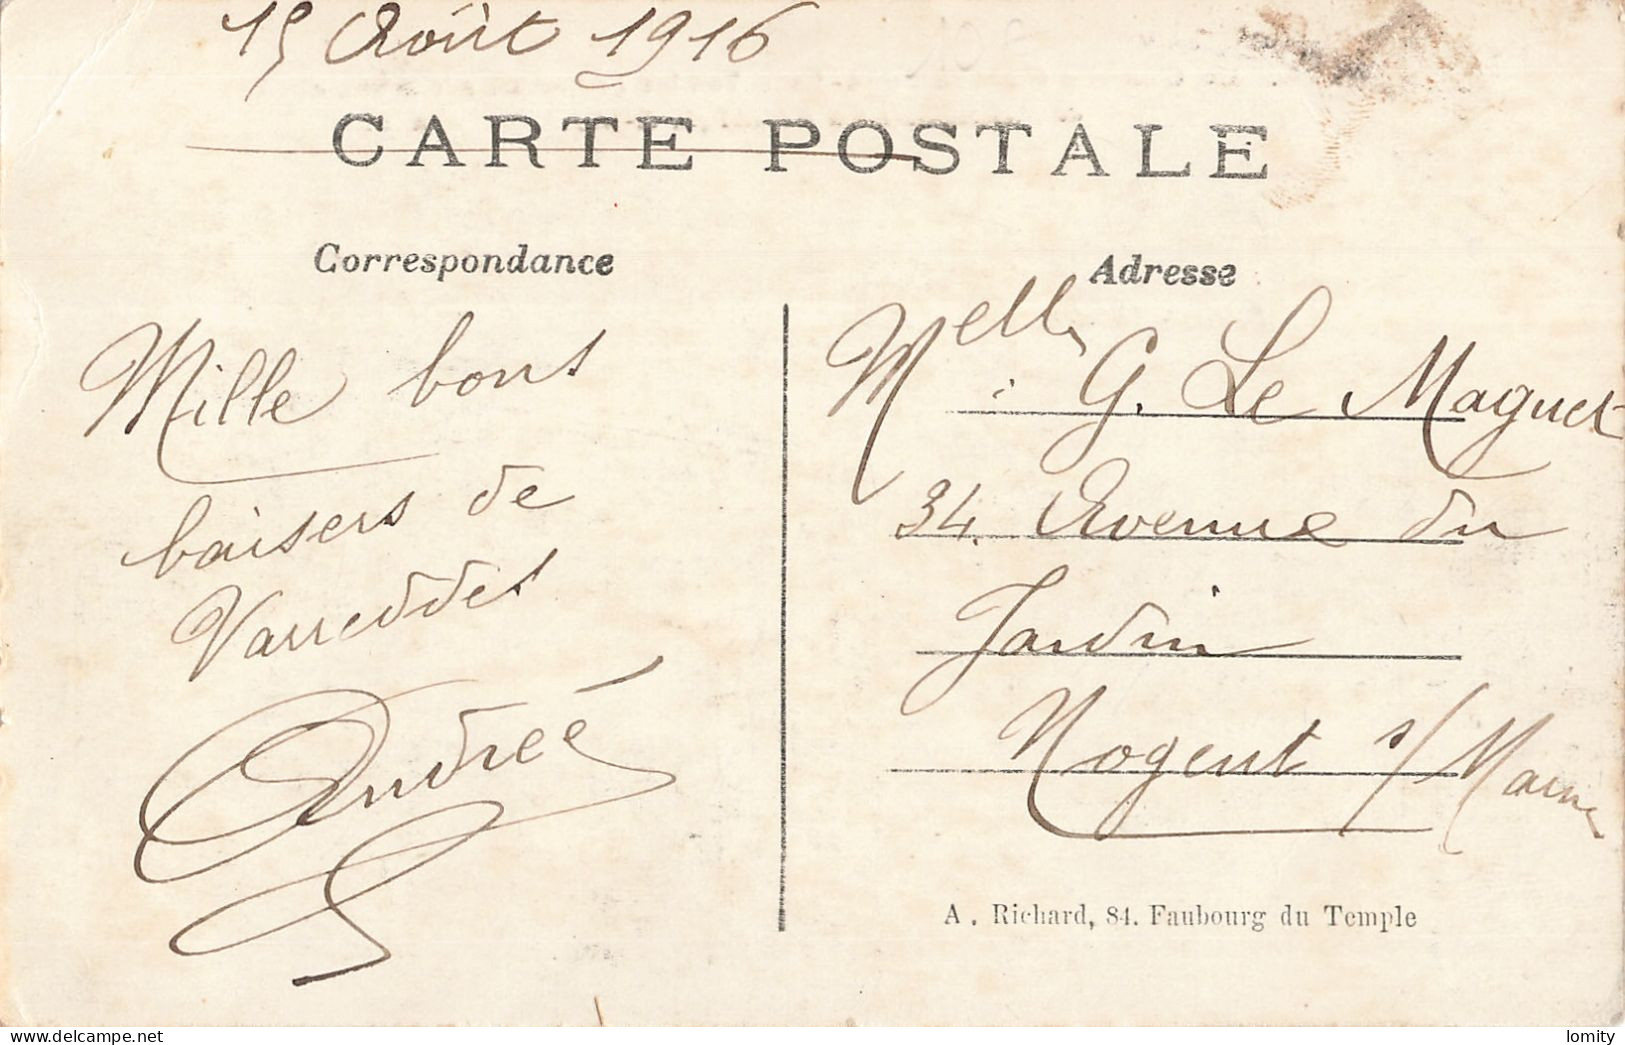 15 Août 1916
CARTE POSTALE
Correspondance
Mille bons
baisers de
Varreddes
Andrée
Adresse
Melle G. Le Maguet
34. Avenue du
Jardin
Nogent s/Marne
A. Richard, 84. Faubourg du Temple
lomity